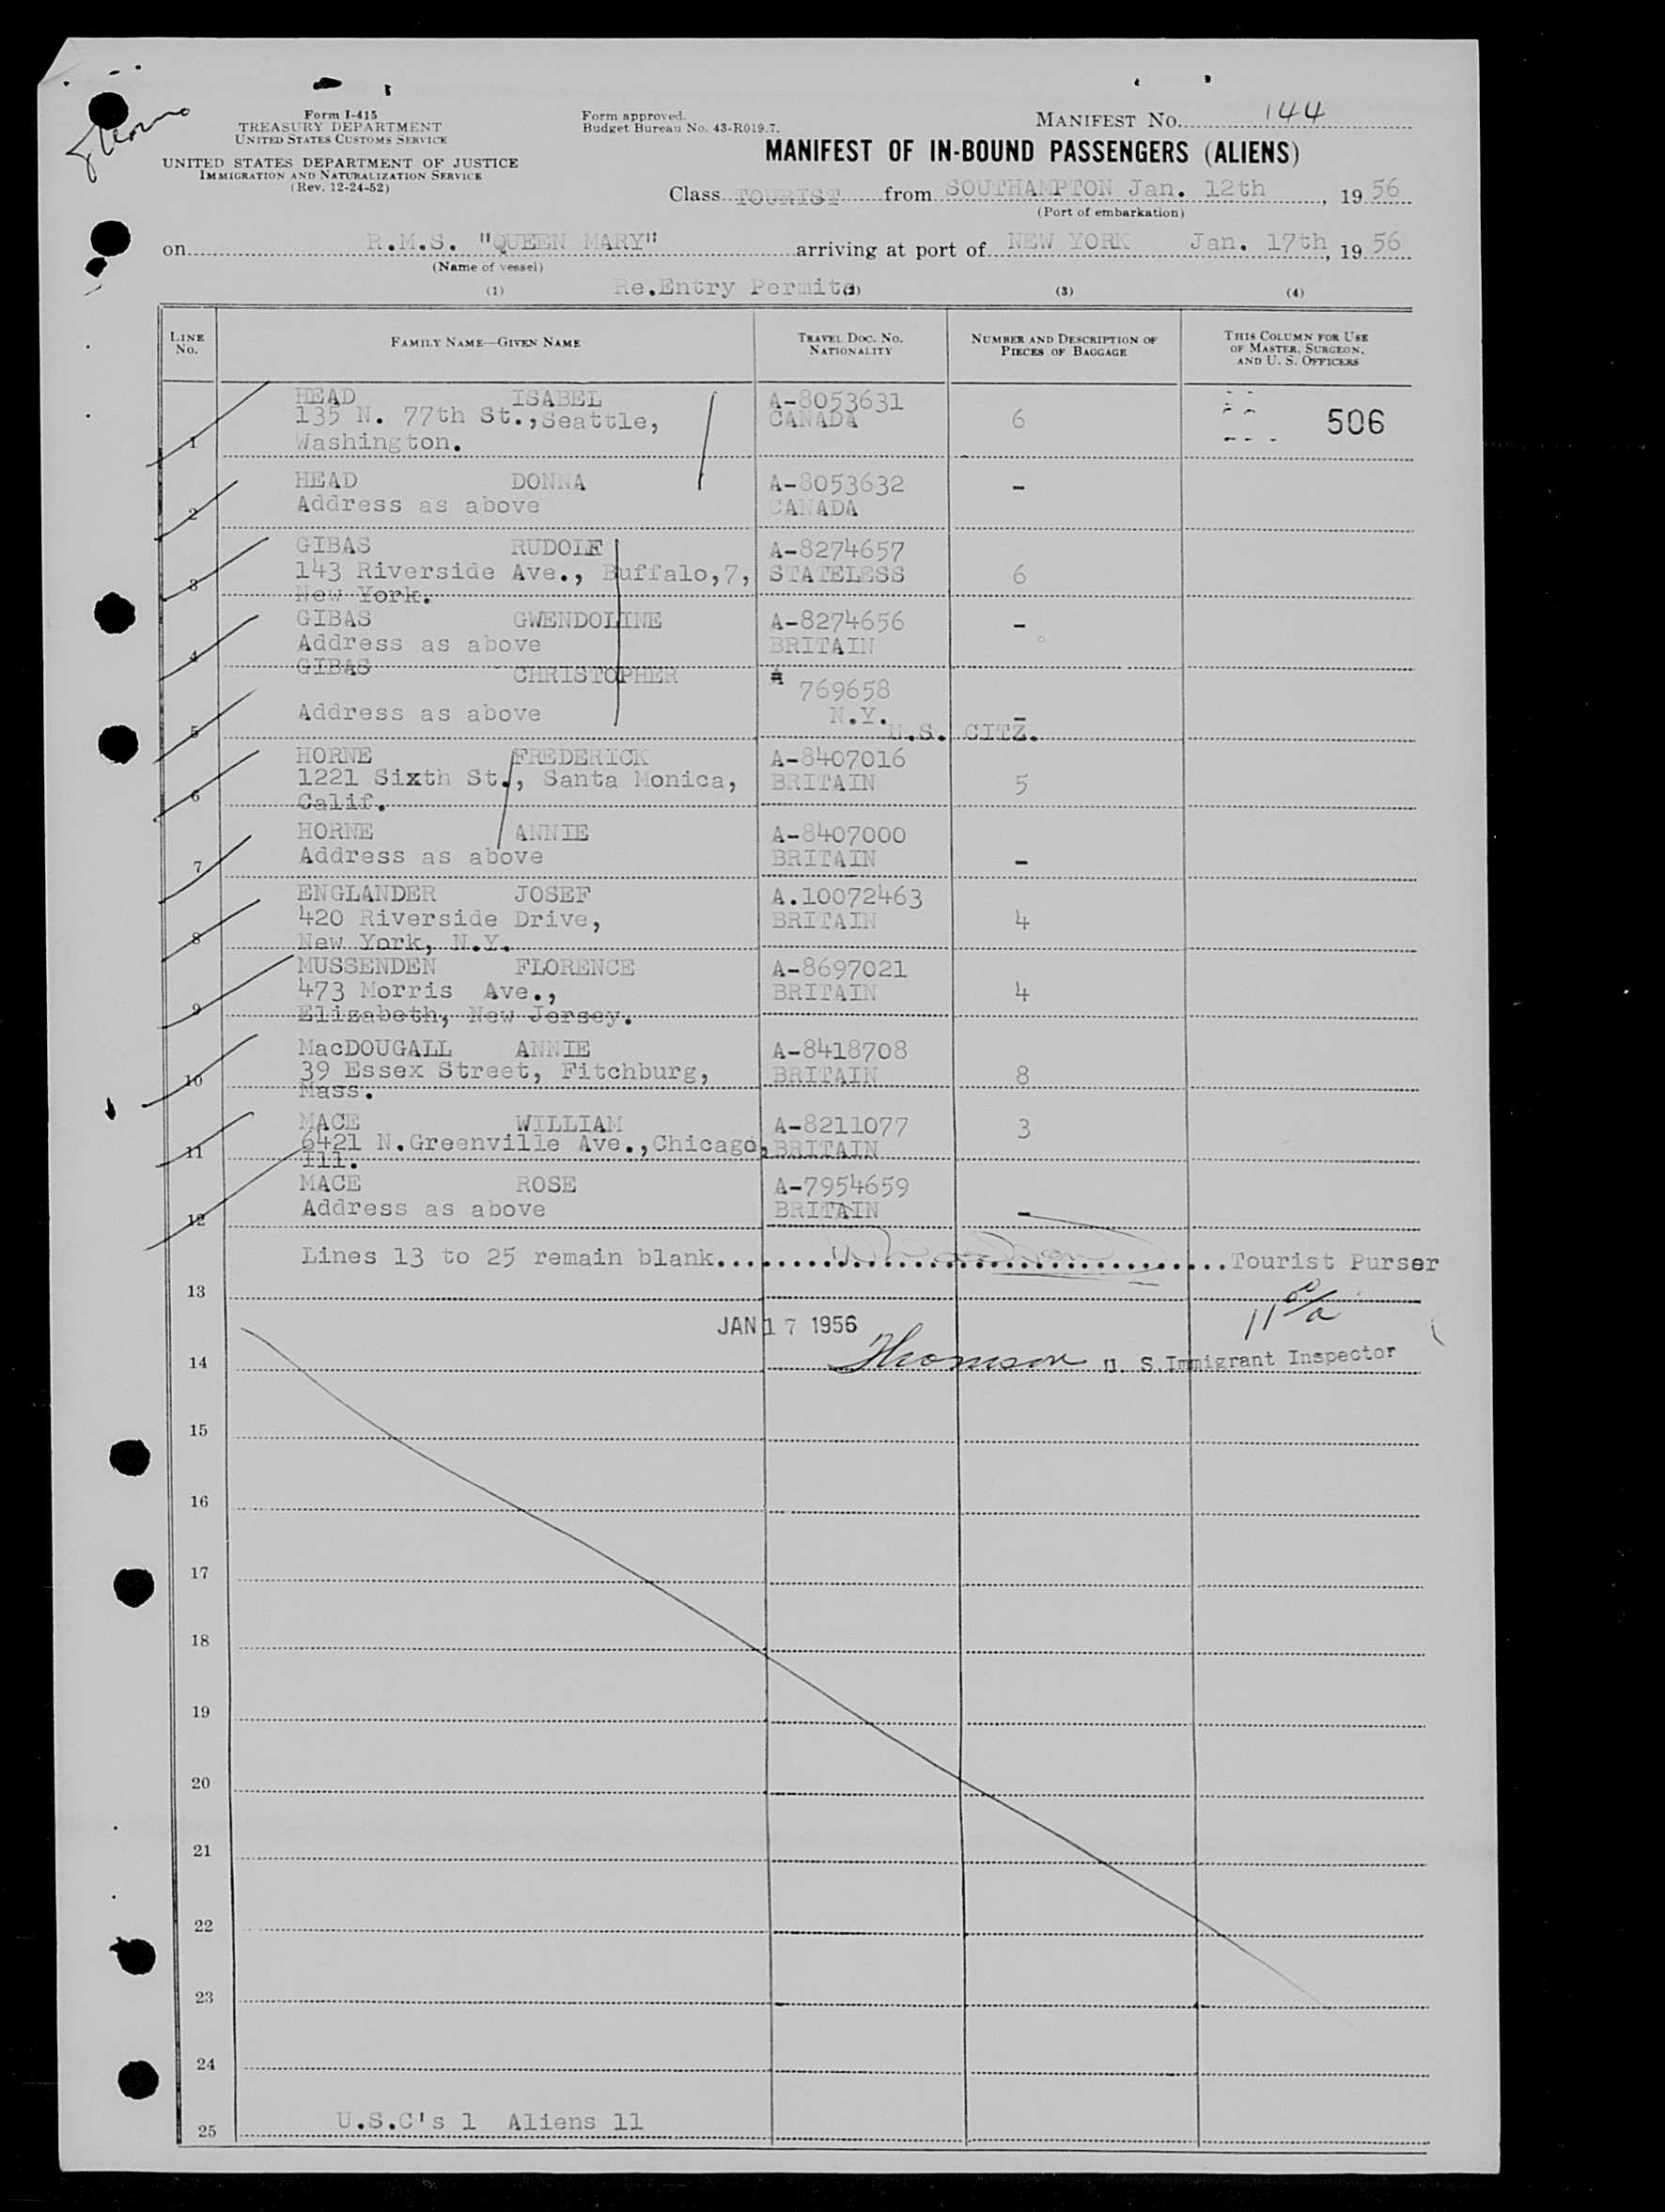 Form I-415
TREASURY DEPARTMENT
UNITED STATES CUSTOMS SERVICE
UNITED STATES DEPARTMENT OF JUSTICE
IMMIGRATION AND NATURALIZATION SERVICE
(Rev. 12-24-52)
Form approved.
Budget Bureau No. 43-R019.7.
MANIFEST NO. 144
MANIFEST OF IN-BOUND PASSENGERS (ALIENS)
Class TOURIST from SOUTHAMPTON Jan. 12th, 19 56
(Port of embarkation)
on R.M.S. "QUEEN MARY" arriving at port of NEW YORK Jan. 17th, 19 56
(Name of vessel)
(1) Re.Entry Permits (2) (3) (4)
LINE No. FAMILY NAME—GIVEN NAME TRAVEL DOC. NO. NATIONALITY NUMBER AND DESCRIPTION OF PIECES OF BAGGAGE THIS COLUMN FOR USE OF MASTER, SURGEON, AND U. S. OFFICERS
HEAD ISABEL A-8053631
135 N. 77th St.,Seattle, CANADA 6 506
1 Washington.
HEAD DONNA A-8053632 -
2 Address as above CANADA
GIBAS RUDOLF A-8274657
3 143 Riverside Ave., Buffalo,7, STATELESS 6
New York.
GIBAS GWENDOLINE A-8274656 -
4 Address as above BRITAIN
GIBAS CHRISTOPHER 769658
5 Address as above N.Y. -
U.S. CITZ.
HORNE FREDERICK A-8407016
6 1221 Sixth St., Santa Monica, BRITAIN 5
Calif.
HORNE ANNIE A-8407000
7 Address as above BRITAIN -
ENGLANDER JOSEF A.10072463
420 Riverside Drive, BRITAIN 4
8 New York, N.Y.
MUSSENDEN FLORENCE A-8697021
473 Morris Ave., BRITAIN 4
9 Elizabeth, New Jersey.
MacDOUGALL ANNIE A-8418708
10 39 Essex Street, Fitchburg, BRITAIN 8
Mass.
MACE WILLIAM A-8211077 3
11 6421 N.Greenville Ave.,Chicago, BRITAIN
Ill.
MACE ROSE A-7954659
12 Address as above BRITAIN -
Lines 13 to 25 remain blank. Tourist Purser
13
JAN 17 1956
14 Thomson U. S. Immigrant Inspector
15
16
17
18
19
20
21
22
23
24
25 U.S.C's 1 Aliens 11